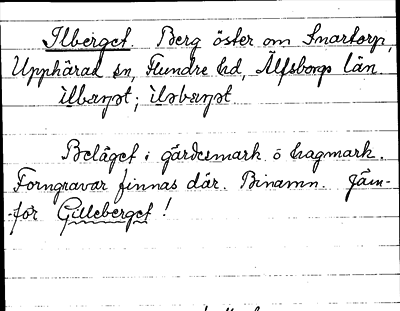 Ilberget. Berg öster om Snartorp,
Upphärad sn, Flundre hd, Älfsborgs län.
Beläget i gärdesmark o hagmark.
Forngravar finnas där. Binamn. Jäm-
-för Gilleberget!